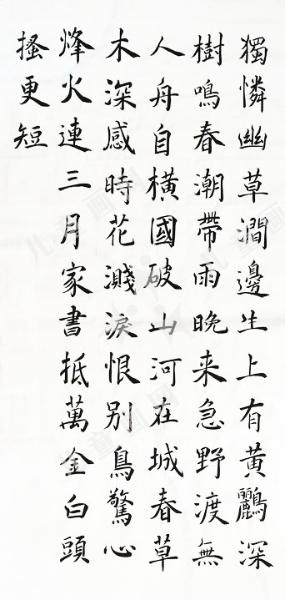 獨憐幽草澗邊生上有黃鸝深
樹鳴春潮帶雨晚来急野渡無
人舟自橫國破山河在城春草
木深感時花濺淚恨别鳥驚心
烽火連三月家書抵萬金白頭
搔更短